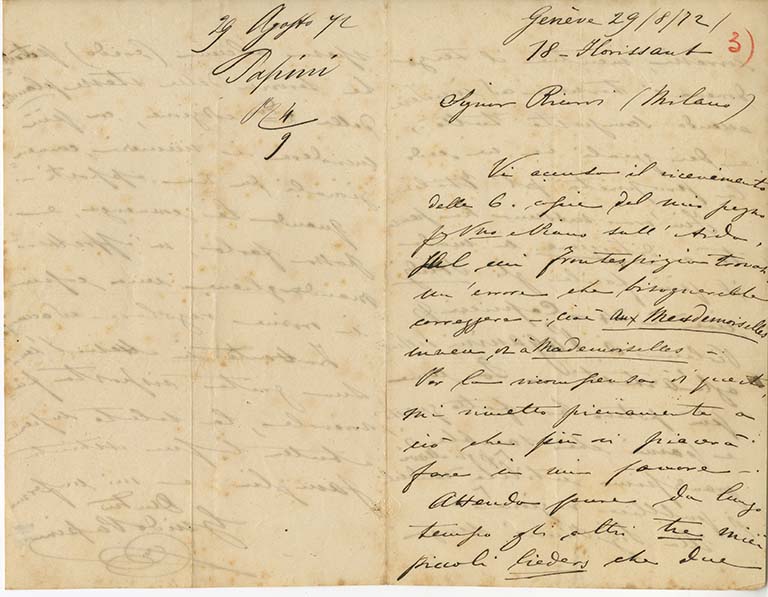 29 Agosto 72
Papini
R 4/9
Genève 29/8/72/
18 - Florissant
3)
Signor Ricordi (Milano)
Vi accuso il ricevimento
delle 6. copie del mio pezzo
p Vno e Piano sull' Aida,
Nel cui frontespizio trovai
un' errore che bisognerebbe
correggere - cioè aux Mesdemoiselles
invece di à Mademoiselles -.
Per la ricompensa di questi,
mi rimetto pienamente a
ciò che più vi piacerà
fare in mio favore -.
Attendo pure da lungo
tempo gli altri tre miei
piccoli lieders che due